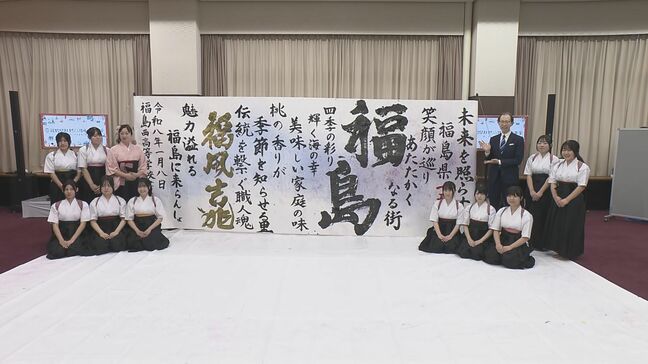 未来を照らす
福島県
笑顔が巡り
あたたかく
なる街
福島
四季の彩り
輝く海の幸
美味しい家庭の味
桃の香りが
季節を知らせる
伝統を繋ぐ職人魂
福風吉兆
魅力溢れる
福島に来らんしょ
令和八年一月八日
福島西高等学校